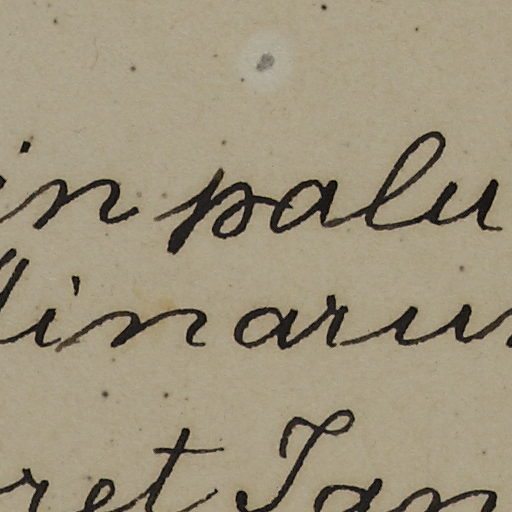 in palu
llinarum
ret Jan